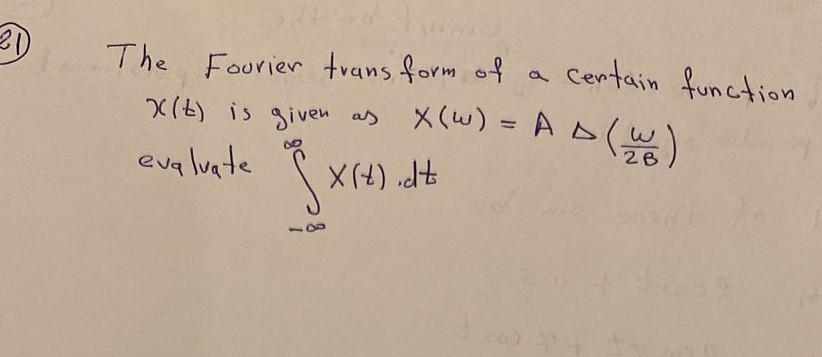 21 The Fourier transform of a certain function
x(t) is given as X(ω) = A Δ(ω/2B)
evaluate ∫_{-∞}^{∞} x(t).dt